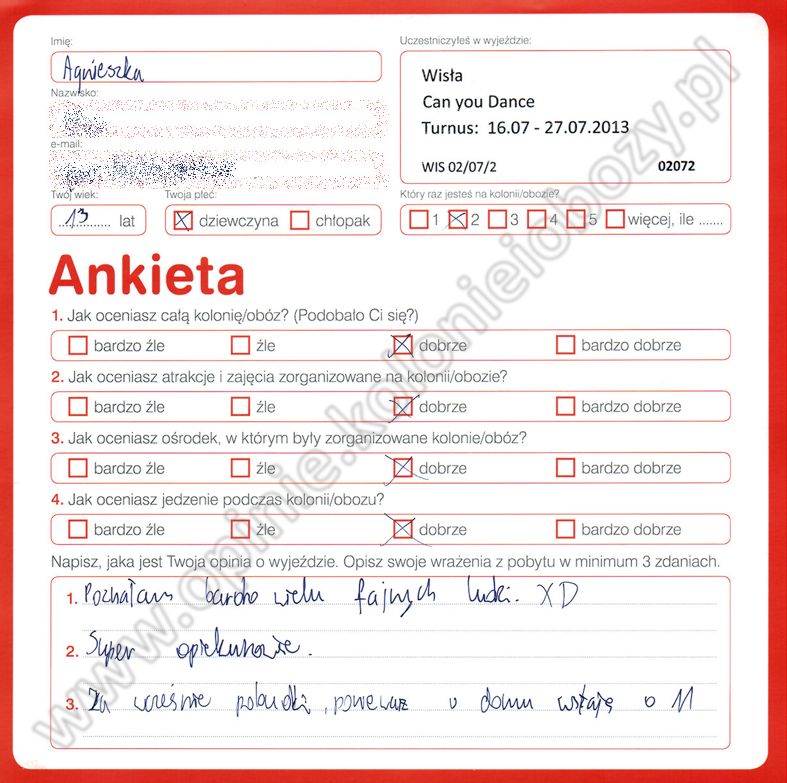 Imię:
Uczestniczyłeś w wyjeździe:
Agnieszka
Wisła
Can you Dance
Turnus: 16.07 - 27.07.2013
WIS 02/07/2 02072
Nazwisko:
e-mail:
Twój wiek: Twoja płeć: Który raz jesteś na kolonii/obozie?
13 lat dziewczyna chłopak 1 2 3 4 5 więcej, ile .......
Ankieta
1. Jak oceniasz całą kolonię/obóz? (Podobało Ci się?)
bardzo źle źle dobrze bardzo dobrze
2. Jak oceniasz atrakcje i zajęcia zorganizowane na kolonii/obozie?
bardzo źle źle dobrze bardzo dobrze
3. Jak oceniasz ośrodek, w którym były zorganizowane kolonie/obóz?
bardzo źle źle dobrze bardzo dobrze
4. Jak oceniasz jedzenie podczas kolonii/obozu?
bardzo źle źle dobrze bardzo dobrze
Napisz, jaka jest Twoja opinia o wyjeździe. Opisz swoje wrażenia z pobytu w minimum 3 zdaniach.
1. Poznałam bardzo wielu fajnych ludzi. XD
2. Super opiekunowie.
3. Za wcześnie pobudki, ponieważ w domu wstaję o 11
www.opinie.kolonieiobozy.pl